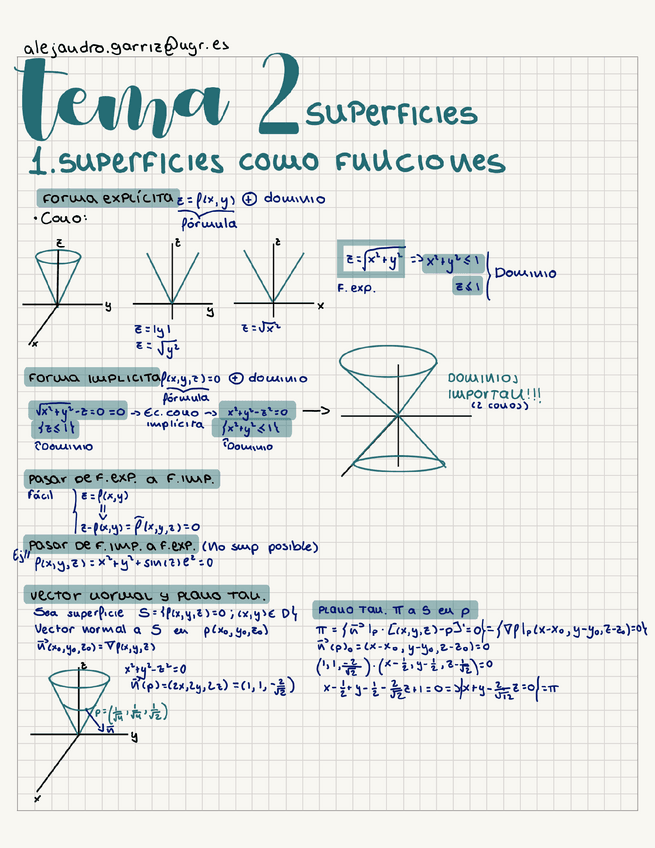 alejandro.garriz@ugr.es
tema 2 superficies
1. superficies como funciones
forma explícita z = f(x,y) ⊕ dominio
fórmula
• Cono:
z
y
x
z
y
z = |y|
z = √y²
z
x
z = √x²
z = √x²+y² => x²+y² ≤ 1
z ≤ 1
Dominio
F. exp.
forma implícita f(x,y,z) = 0 ⊕ dominio
fórmula
√x²+y² - z = 0 = 0 → Ec. cono implícita → x²+y²-z² = 0 →
{z ≤ 1}
{x²+y² ≤ 1}
↑Dominio
↑Dominio
DOMINIOS
IMPORTAN!!!
(2 conos)
pasar de F. exp. a F. imp.
Fácil
z = f(x,y)
⇓
z - f(x,y) = f̃(x,y,z) = 0
pasar de F. imp. a F. exp. (No smp posible)
Ej"
f(x,y,z) = x²+y²+sin(z)e^z = 0
vector normal y plano tan.
Sea superficie S = {f(x,y,z) = 0 ; (x,y) ∈ D}
Vector normal a S en p(x₀,y₀,z₀)
n⃗(x₀,y₀,z₀) = ∇f(x,y,z)
z
y
x
x²+y²-z² = 0
n⃗(p) = (2x,2y,2z) = (1,1,-2/√2)
p = (1/√4, 1/√4, 1/√2)
n⃗
plano tan. π a S en p
π = {n⃗|p · [(x,y,z)-p] = 0} = {∇f|p (x-x₀, y-y₀, z-z₀) = 0}
n⃗(p)₀ = (x-x₀, y-y₀, z-z₀) = 0
(1,1,-2/√2) · (x-1/2, y-1/2, z-1/√2) = 0
x - 1/2 + y - 1/2 - 2/√2 z + 1 = 0 => x+y - 2/√2 z = 0 = π